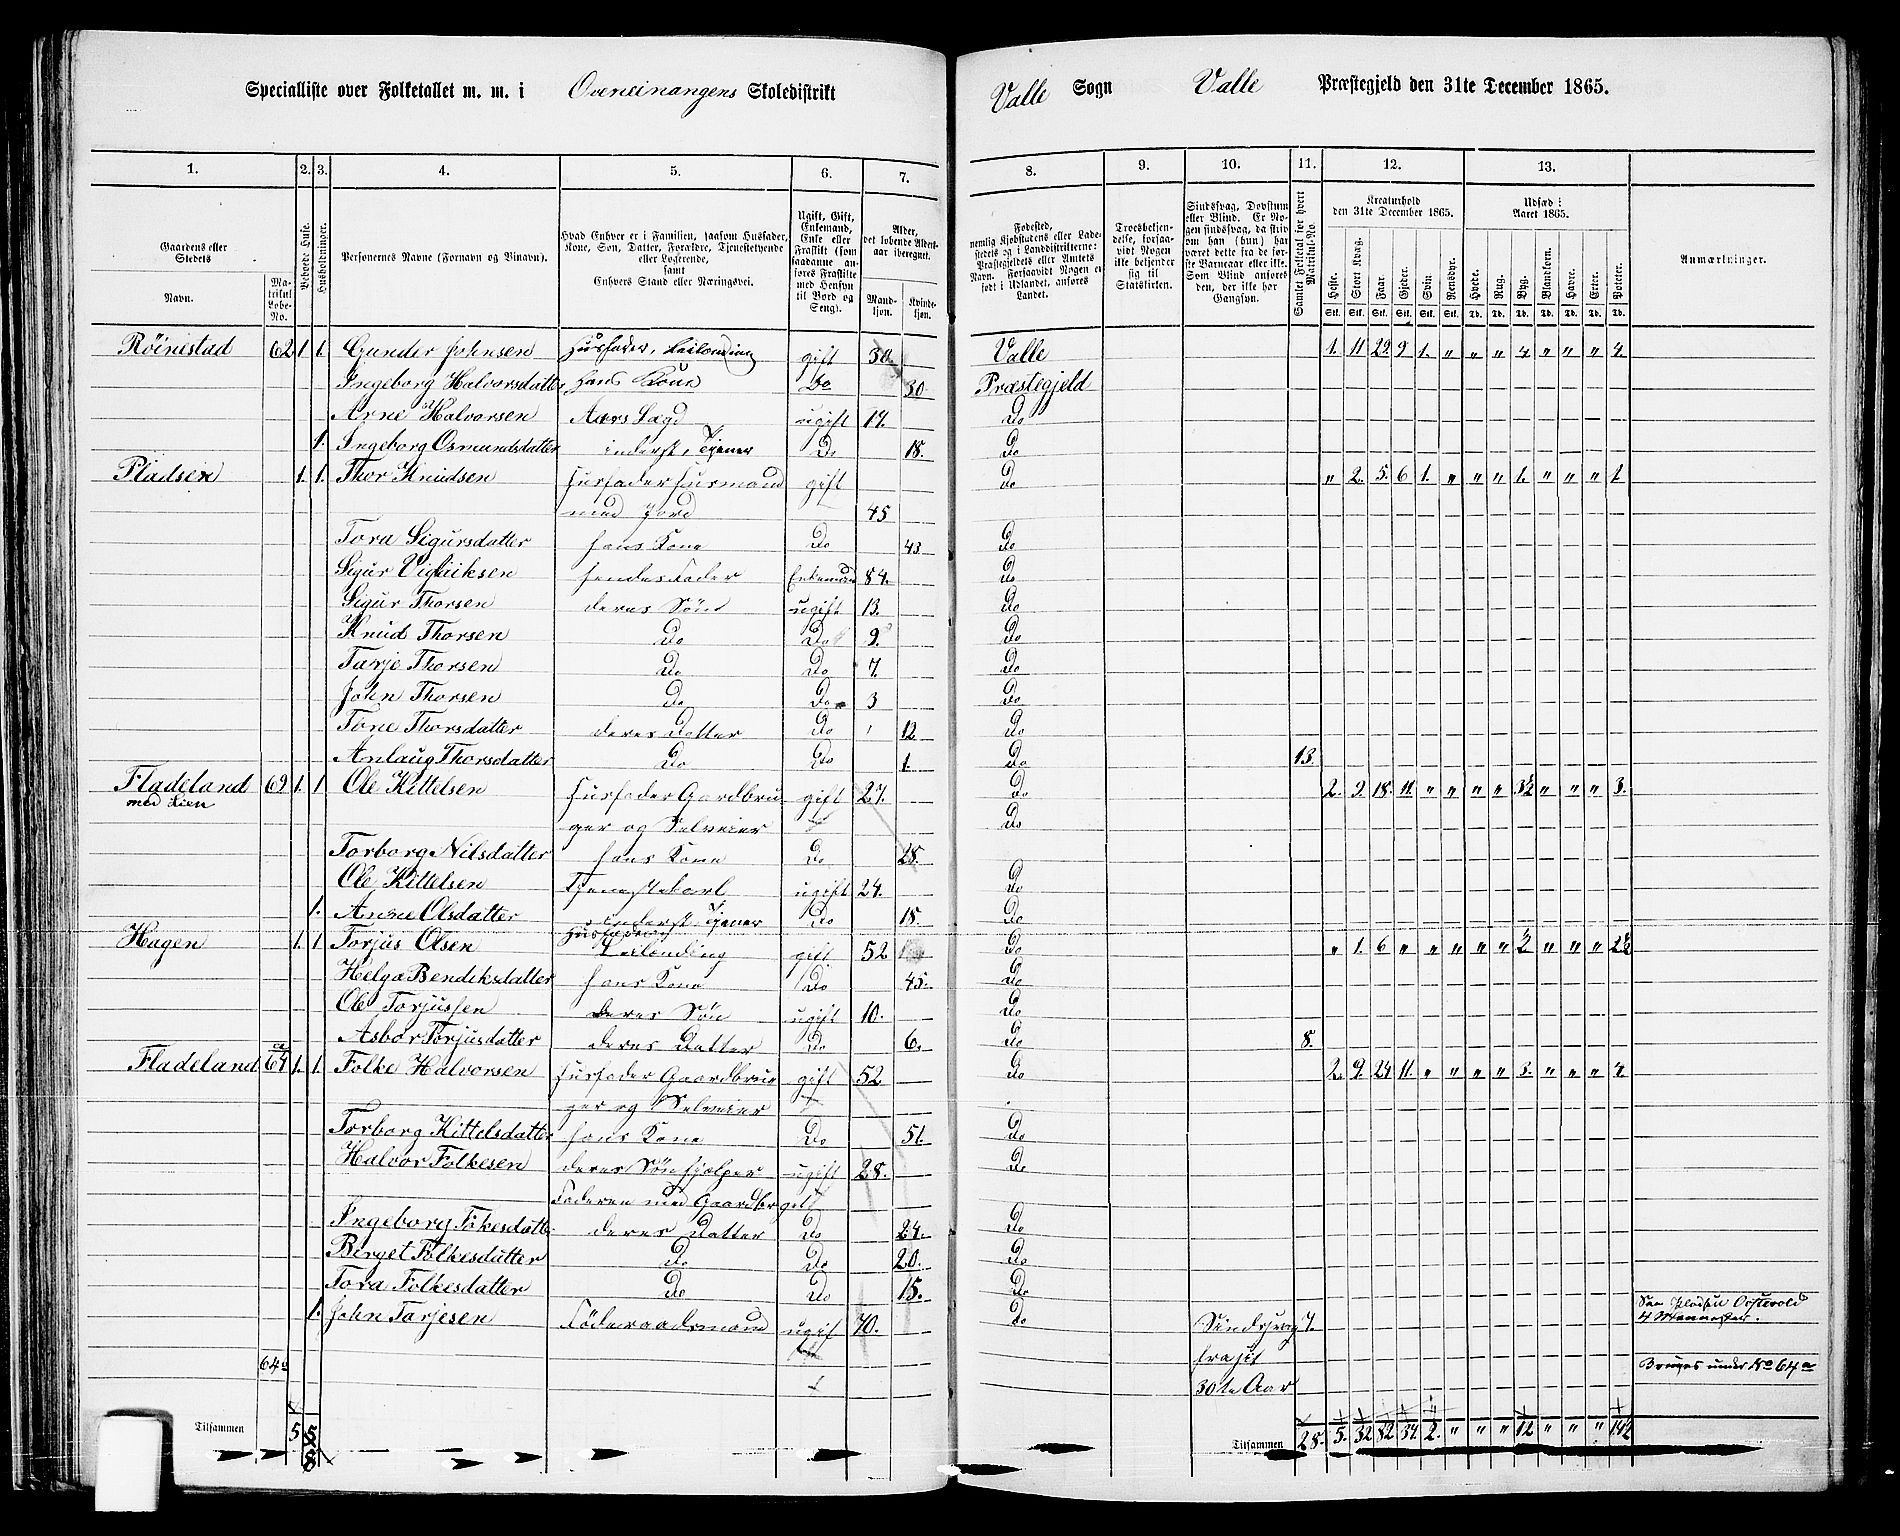 Specialliste over Folketallet m. m. i Oveneinangens Skoledistrikt
Valle Sogn Valle Præstegjeld den 31te December 1865.
1. 2. 3. 4. 5. 6. 7. 8. 9. 10. 11. 12. 13.
Gaardens eller Stedets Navn. Matrikul Løbe-No. Beboede Huse. Husholdninger.
Personernes Navne (Fornavn og Tilnavn).
Hvad Enhver er i Familien, saasom Husfader, Kone, Søn, Datter, Forældre, Tjenestetyende eller Logerende, samt Enhvers Stand eller Næringsvei.
Ugift, Gift, Enkemand, Enke eller Fraskilt (saadanne anføres Fraskilte med Hensyn til Bord og Seng).
Alder, det løbende Alders-aar iberegnet. Mand-kjøn. Kvinde-kjøn.
Fødested, nemlig Kjøbstadens eller Ladestedets og i Landdistrikterne: Præstegjeldets eller Amtets Navn. Forsaavidt Nogen er født i Udlandet, anføres Landet.
Troesbekjendelse, forsaavidt Nogen ikke bekjender sig til Statskirken.
Sindssvag, Døvstum eller Blind. Er Nogen sindssvag, da skrives, om han (hun) har været det fra de første Barneaar eller ikke. Som Blind anføres den, der ikke har Gangsyn.
Samlet Folketal for hvert Matrikul-No.
Kreaturhold den 31te December 1865. Heste. Stort Kvæg. Faar. Gjeder. Svin. Rensdyr.
Udsæd i Aaret 1865. Hvede. Rug. Byg. Blandkorn. Havre. Erter. Poteter.
Anmærkninger.
Røinestad 62 1. 1. Gunder Johnsen Husfader, Leilending gift 30. Valle 1. 11 29 9 1. " " " 4 " " " 4.
Ingeborg Halvorsdatter hans Kone Do 30 Præstegjeld
Arne Halvorsen ugift 14. Do
1. Ingeborg Osmundsdatter inderst, Tjener Do 18. Do
Pladsen 1. 1. Thor Knudsen Husfader Husmand gift Do " 2. 5. 6 1. " " " 1. " " " 1.
med Jord 45
Tora Sigursdatter hans Kone Do 43 Do
Sigur hendes Fader Enkemand 84. Do
Sigur Thorsen deres Søn ugift 13. Do
Knud Thorsen Do Do 9. Do
Tarje Thorsen Do Do 7. Do
John Thorsen Do Do 3 Do
Tone Thorsdatter deres Datter Do 12 Do
Anlaug Thorsdatter Do Do 1. Do 13.
Fladeland 69 1. 1 Ole Kittelsen Husfader Gaardbru gift 27. Do 2. 9. 18. 11. " " " " 3½ " " " 3.
med Lien ger og Selveier Do
Torborg Nilsdatter hans Kone Do 28.
Ole Kittelsen Tjenestekarl ugift 24. Do
1. Anne Olsdatter inderst, Tjener Do 18. Do
Hagen 1. 1 Torjus Olsen Husfader Leilending gift 52 Do " 1. 6 " " " " " ½ " " "
Helga Bendiksdatter hans Kone Do 45. Do
Ole Torjussen deres Søn ugift 10. Do
Asbor Torjusdatter deres Datter Do 6. Do 8.
Fladeland 64 1. 1. Folke Halvorsen Husfader Gaardbru gift 52 Do 2. 9. 24 11. " " " " 3. " " " 4
ger og Selveier
Torborg Kittelsdatter hans Kone Do 51. Do
Halvor Folkesen deres Søn hjelper ugift 28. Do
Faderen med Gaardbr
Ingeborg deres Datter Do 24. Do
Berget Folkesdatter Do Do 20. Do
Tora Folkesdatter Do Do 15. Do
1. John Tarjesen Føderaadsmand ugift 70. Do Sindsvag 7.
4 Mennesker.
64a fra sit Bruges under No 64a
30te Aar
Tilsammen 5 8 Tilsammen 28. 5. 32 82 34. 2. " " " 12 " " " 14½